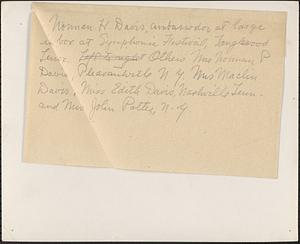 Norman H. Davis, ambassador at large
in box at Symphonic Festival, Tanglewood
Lenox. Left to right Others Mrs Norman P
Davis, Pleasantville N.Y. Mrs Maclin
Davis, Miss Edith Davis, Nashville Tenn.
and Mrs John Potter, N.Y.